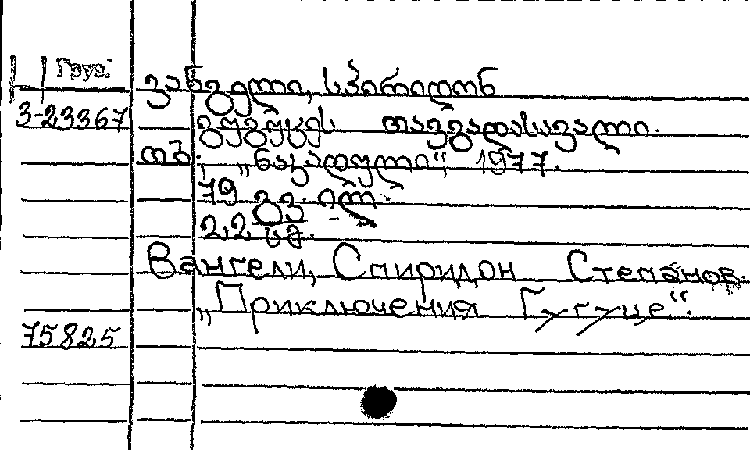 Груз.
ვანგელი, სპირიდონ
3-23367
გუგუცეს თავგადასავალი.
თბ., „ნაკადული“, 1977.
79 გვ. ილ.
22 სმ.
Вангели, Спиридон Степанов.
„Приключения Гугуце“.
75825